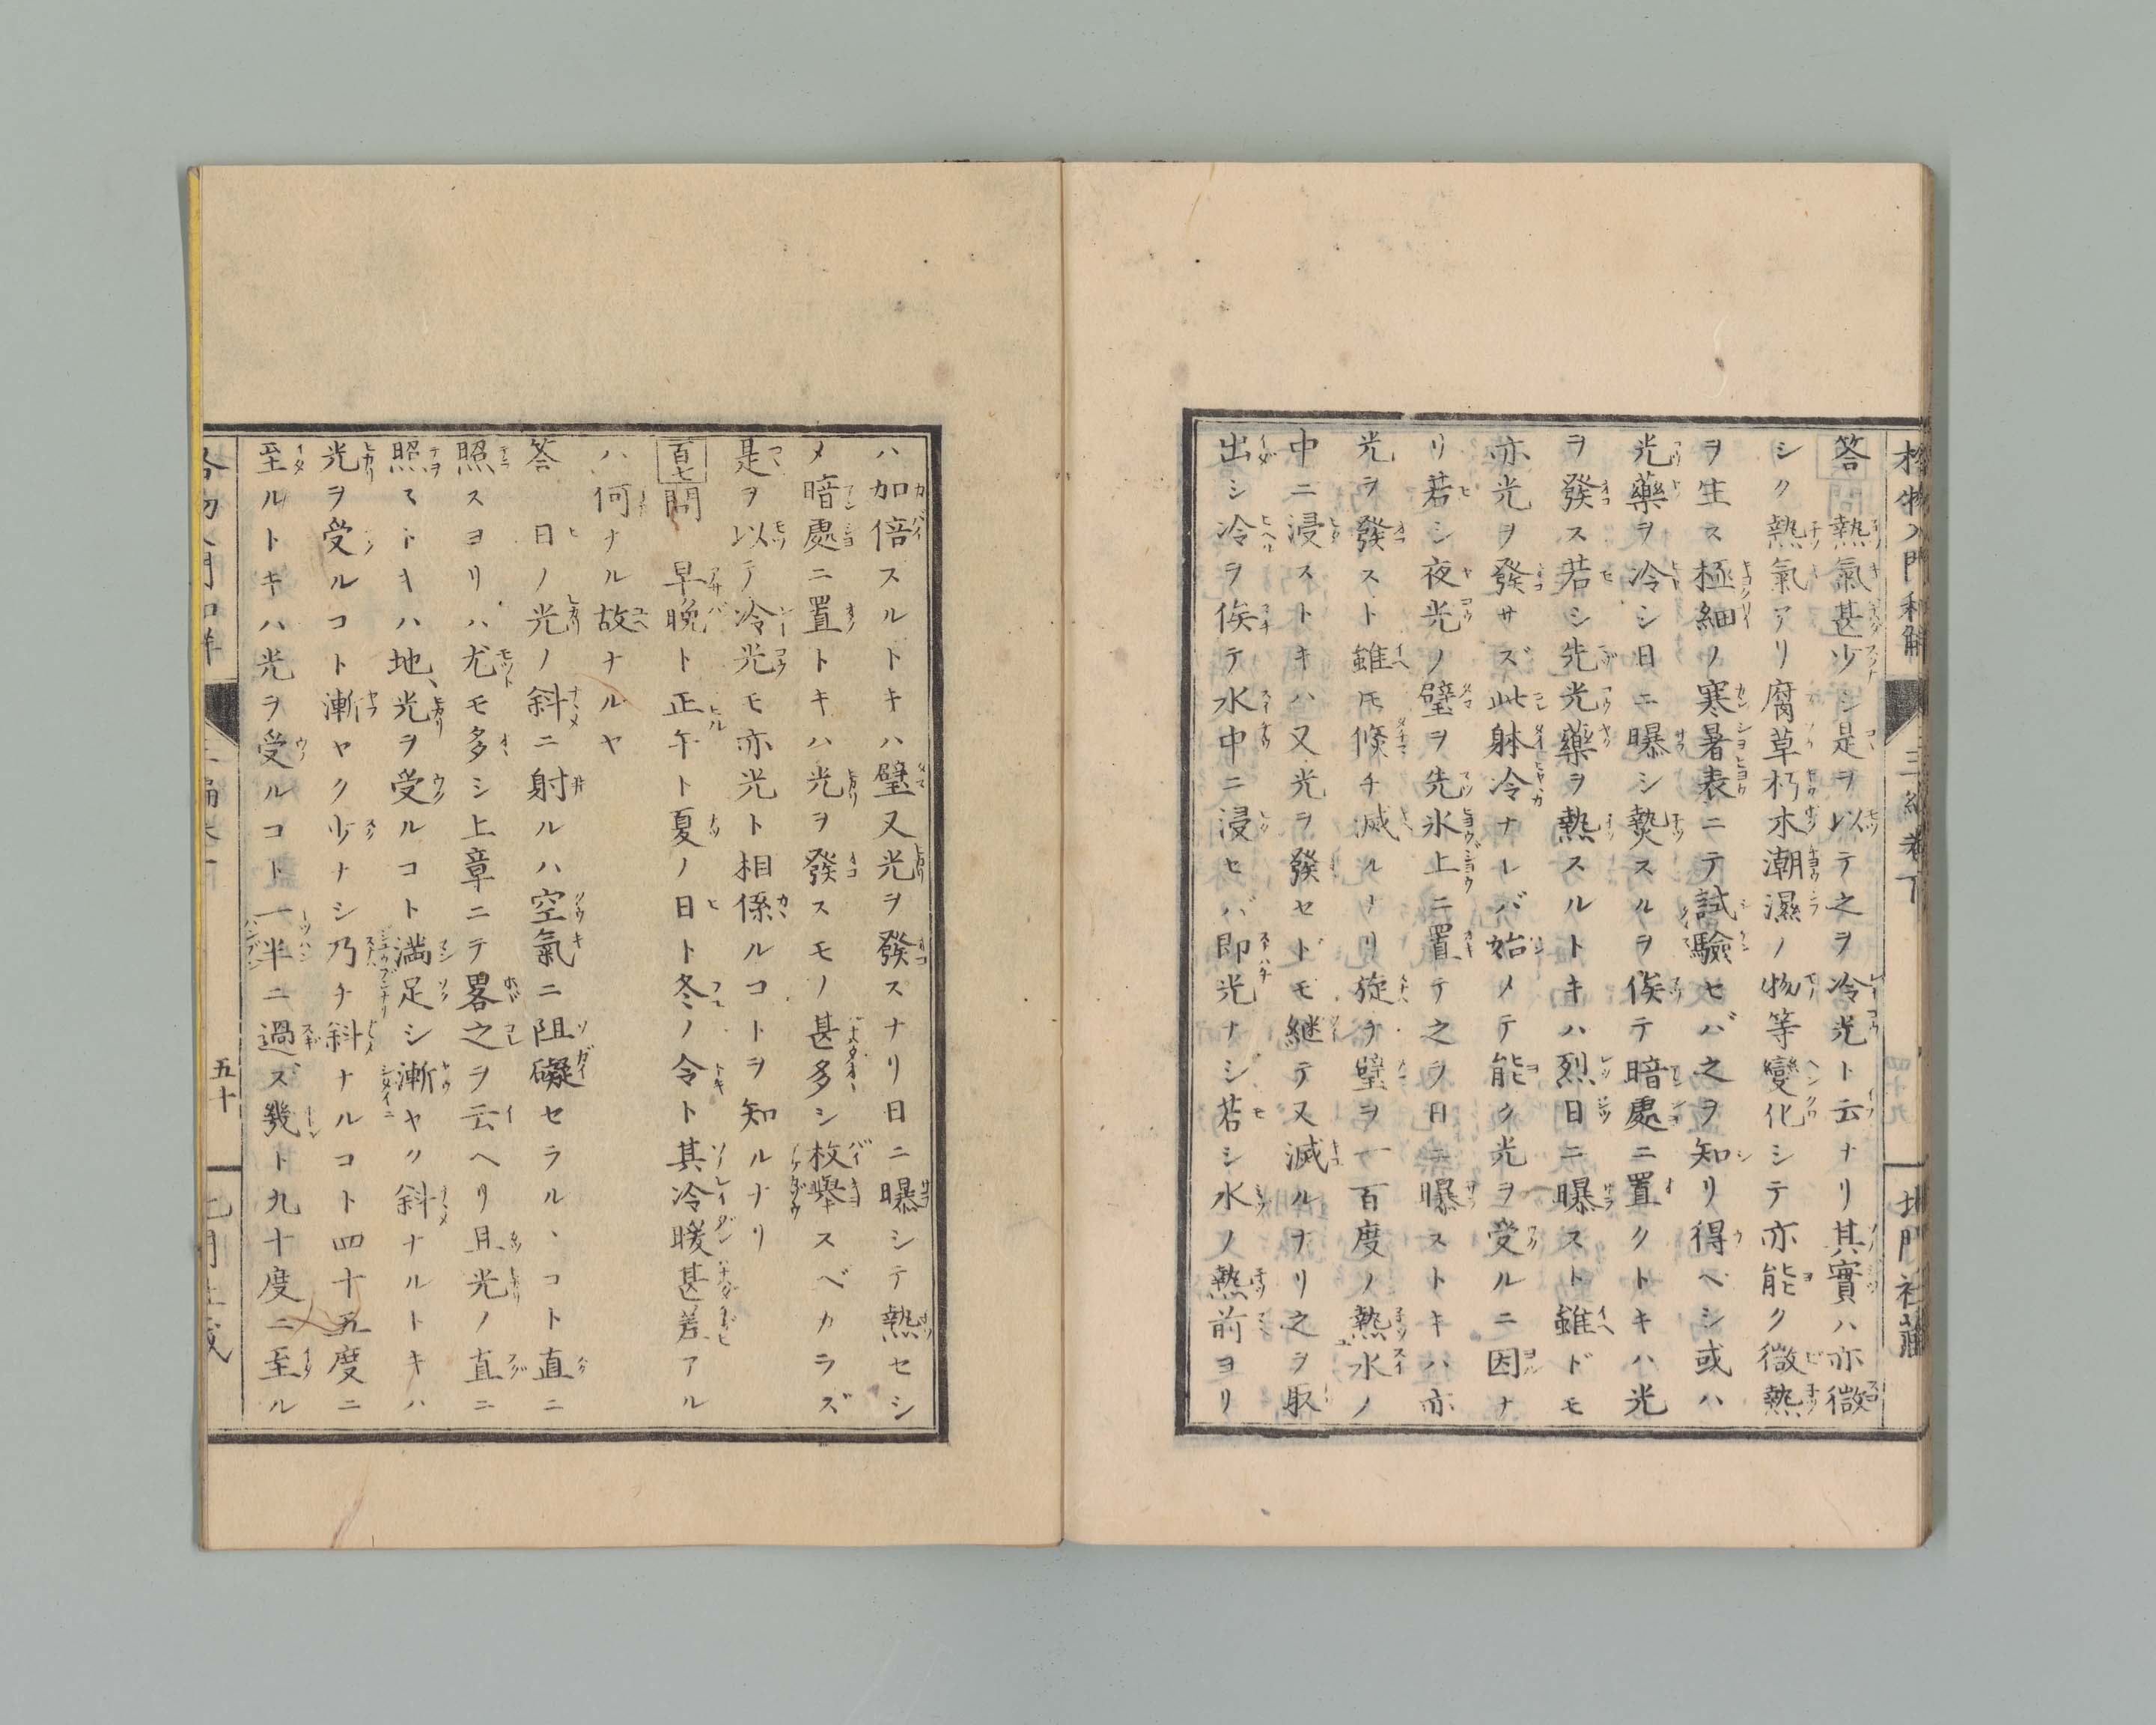 格物入門和解
三編卷下
北門社藏
答 熱氣甚少シ是ヲ以テ之ヲ冷光ト云ナリ其實ハ亦微
シク熱氣アリ腐草朽木潮濕ノ物等變化シテ亦能ク微熱
ヲ生ス極細ノ寒暑表ニテ試驗セバ之ヲ知リ得ベシ或ハ
光藥ヲ冷シ日ニ曝シ熱スルヲ俟テ暗處ニ置クトキハ光
ヲ發ス若シ先光藥ヲ熱スルトキハ烈日ニ曝スト雖ドモ
亦光ヲ發サズ此躰冷ナレバ始メテ能ク光ヲ受ルニ因ナ
リ若シ夜光ノ璧ヲ先氷上ニ置テ之ヲ日ニ曝ストキハ亦
光ヲ發スト雖𪜈倏チ滅ルナリ旋チ璧ヲ一百度ノ熱水ノ
中ニ浸ストキハ又光ヲ發セドモ継テ又滅ルナリ之ヲ取
出シ冷ヲ俟テ水中ニ浸セバ即光ナシ若シ水ノ熱前ヨリ
ハ加倍スルトキハ璧又光ヲ發スナリ日ニ曝シテ熱セシ
メ暗處ニ置トキハ光ヲ發スモノ甚多シ枚擧スベカラズ
是ヲ以テ冷光モ亦光ト相係ルコトヲ知ルナリ
百七問 早晩ト正午ト夏ノ日ト冬ノ令ト其冷暖甚差アル
ハ何ナル故ナルヤ
答 日ノ光ノ斜ニ射ルハ空氣ニ阻礙セラルヽコト直ニ
照スヨリハ尤モ多シ上章ニテ畧之ヲ云ヘリ且光ノ直ニ
照ストキハ地、光ヲ受ルコト満足シ漸ヤク斜ナルトキハ
光ヲ受ルコト漸ヤク少ナシ乃チ斜ナルコト四十五度ニ
至ルトキハ光ヲ受ルコト一半ニ過ズ幾ト九十度ニ至ル
五十